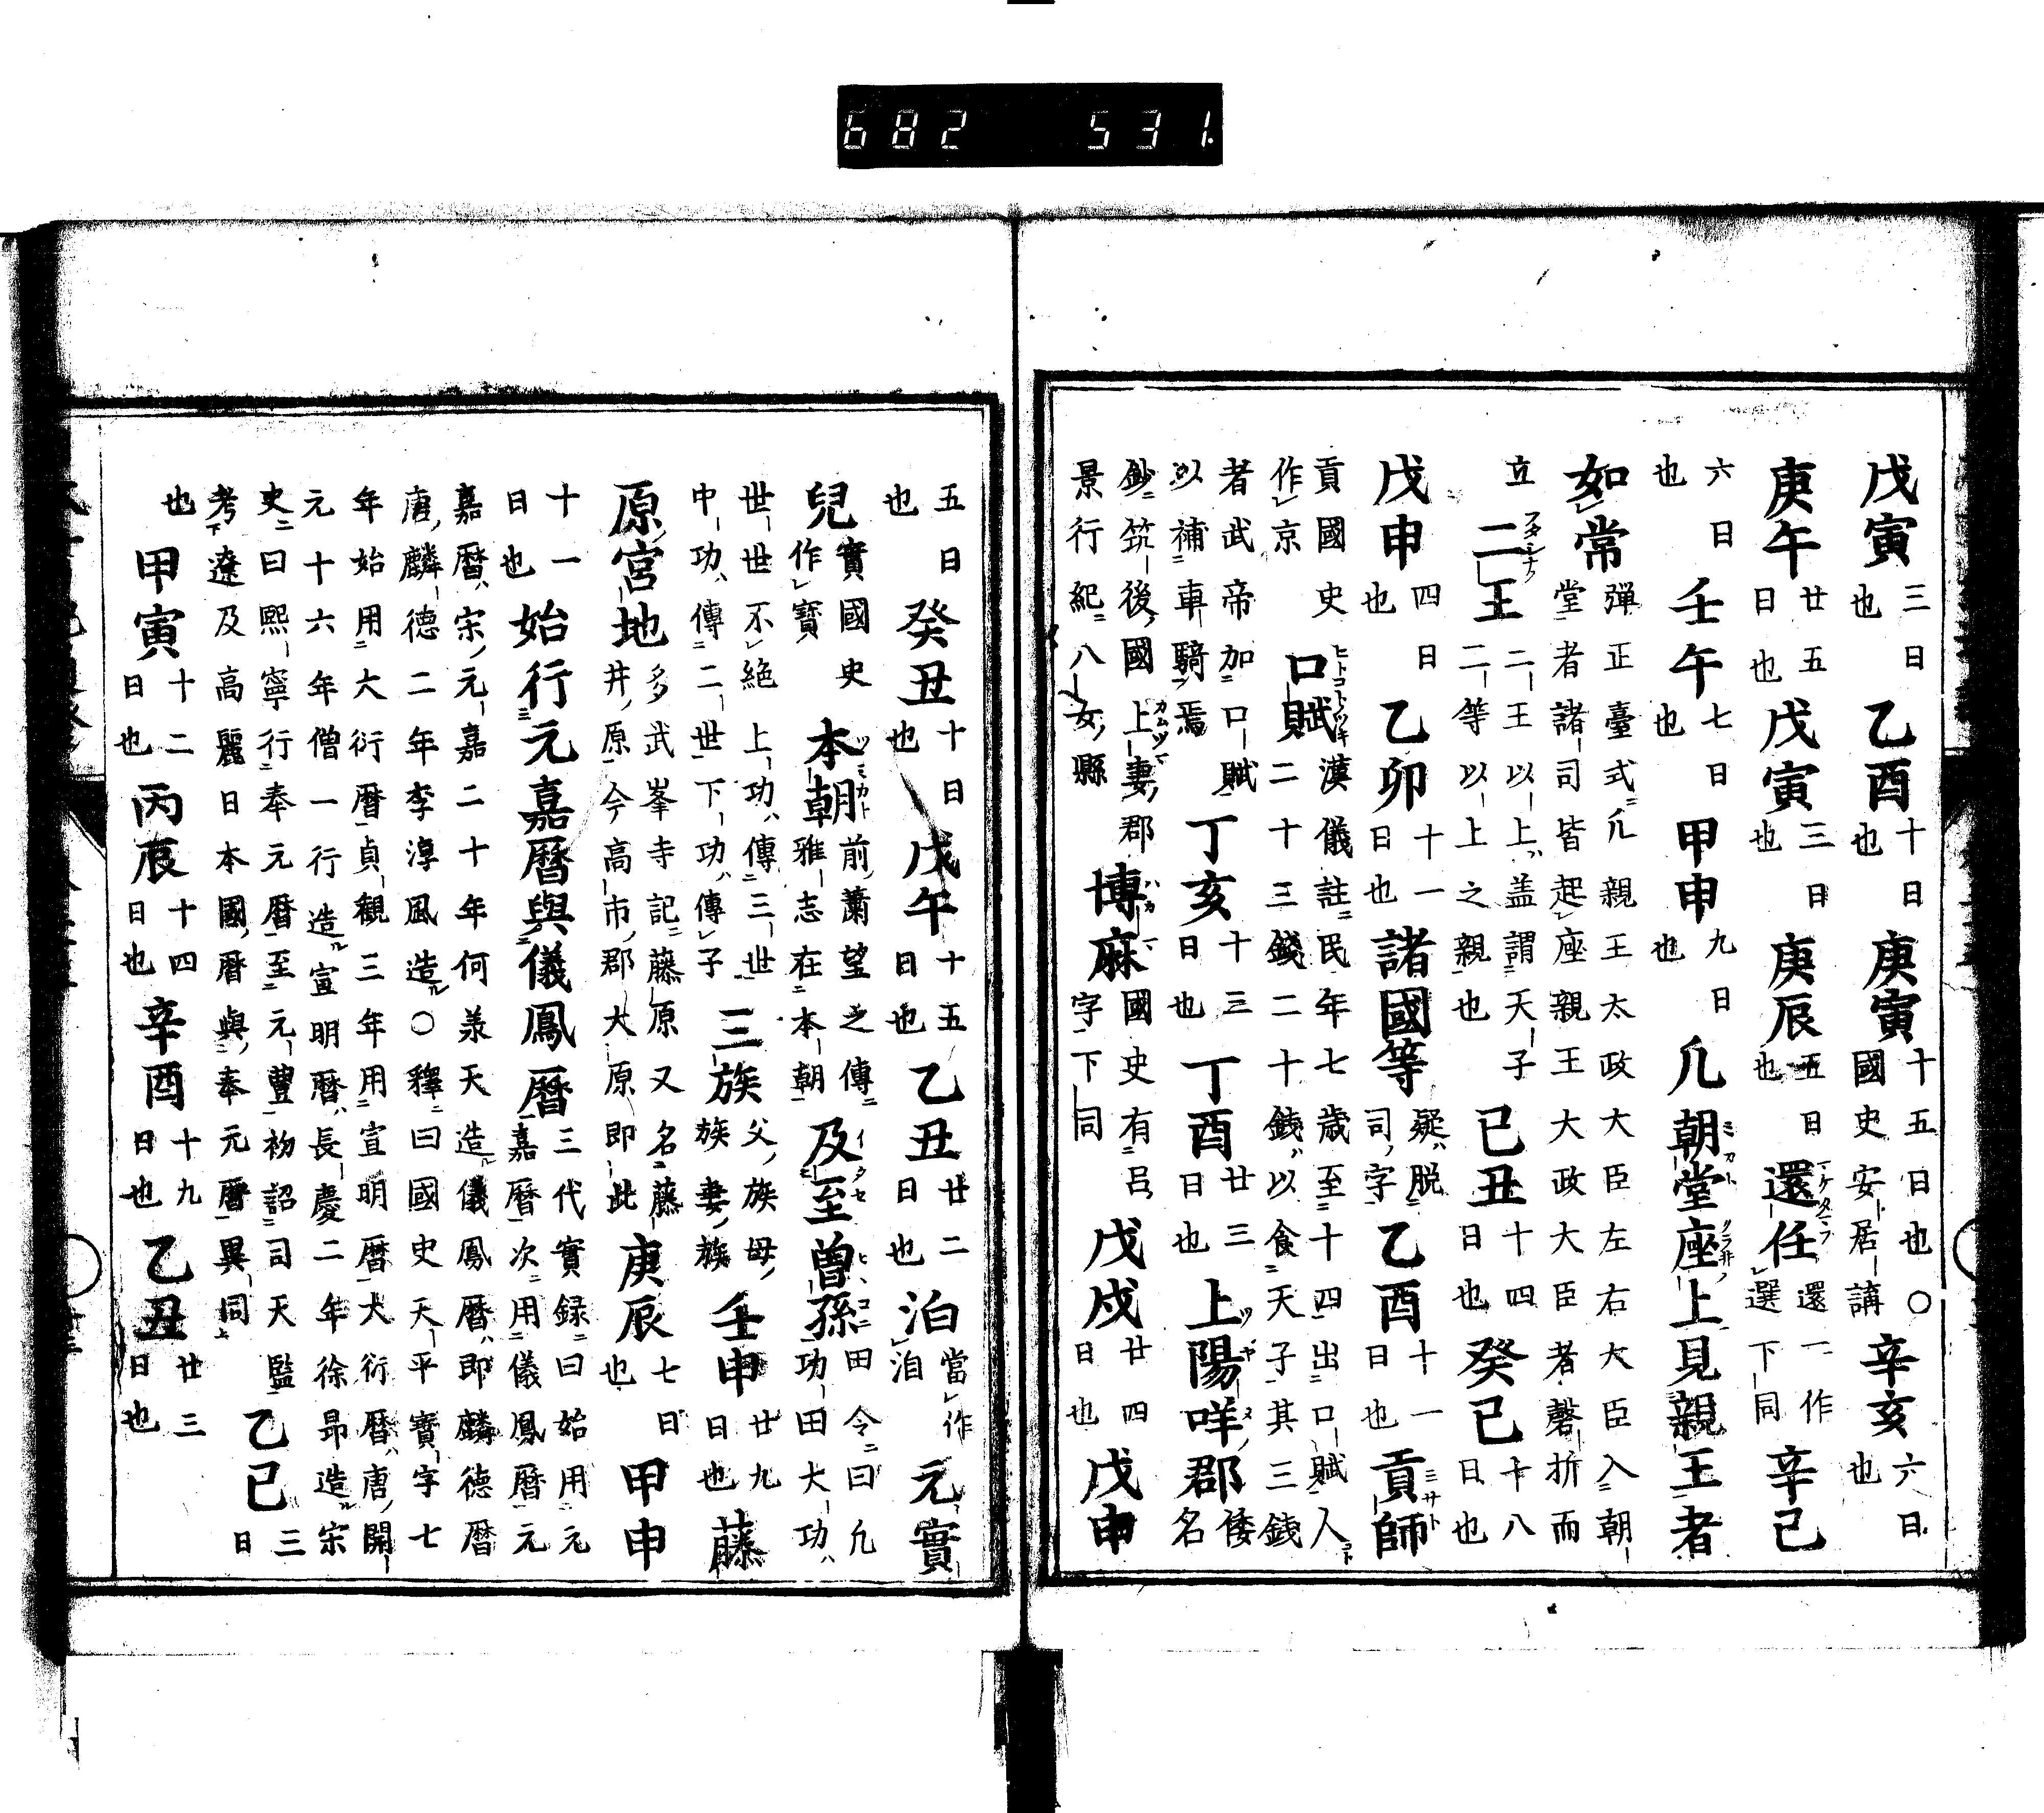 戊寅三日也乙酉十日也庚寅十五日也○國史安居講辛亥六日也
庚午廿五日也戊寅三日也庚辰五日也還任還一作選下同辛巳
六日也壬午七日也甲申九日也凡朝堂座上見親王者
如常彈正臺式凡親王太政大臣左右大臣入朝堂者諸司皆起座親王大政大臣者磬折而
立二王二王以上盖謂天子二等以上之親也己丑十四日也癸巳十八日也
戊申四日也乙卯十一日也諸國等疑脱司字乙酉十一日也貢師
貢國史作京口賦漢儀註民年七歳至十四出口賦人二十三錢二十錢以食天子其三錢
者武帝加口賦以補車騎焉丁亥十三日也丁酉廿三日也上陽咩郡倭名
鈔筑後國上妻郡景行紀八女縣博麻國史有呂字下同戊戌廿四日也戊申
五日也癸丑十日也戊午十五日也乙丑廿二日也泊當作洎元實
兒實國史作寳本朝前蕭望之傳雅志在本朝及至曽孫田令曰凡功田大功
世世不絶上功傳三世中功傳二世下功傳子三族父族母族妻族壬申廿九日也藤
原宮地多武峯寺記藤原又名藤井原今高市郡大原即此庚辰七日也甲申
十一日也始行元嘉暦與儀鳳暦三代實録曰始用元嘉暦次用儀鳳暦元
嘉暦宋元嘉二十年何承天造儀鳳暦即麟德暦
唐麟德二年李淳風造○釋曰國史天平寳字七
年始用大衍暦貞觀三年用宣明暦大衍暦唐開
元十六年僧一行造宣明暦長慶二年徐昂造宋
史曰熙寧行奉元暦至元豊初詔司天監考遼及高麗日本國暦與奉元暦異同乙巳三日
也甲寅十二日也丙辰十四日也辛酉十九日也乙丑廿三日也
682 531